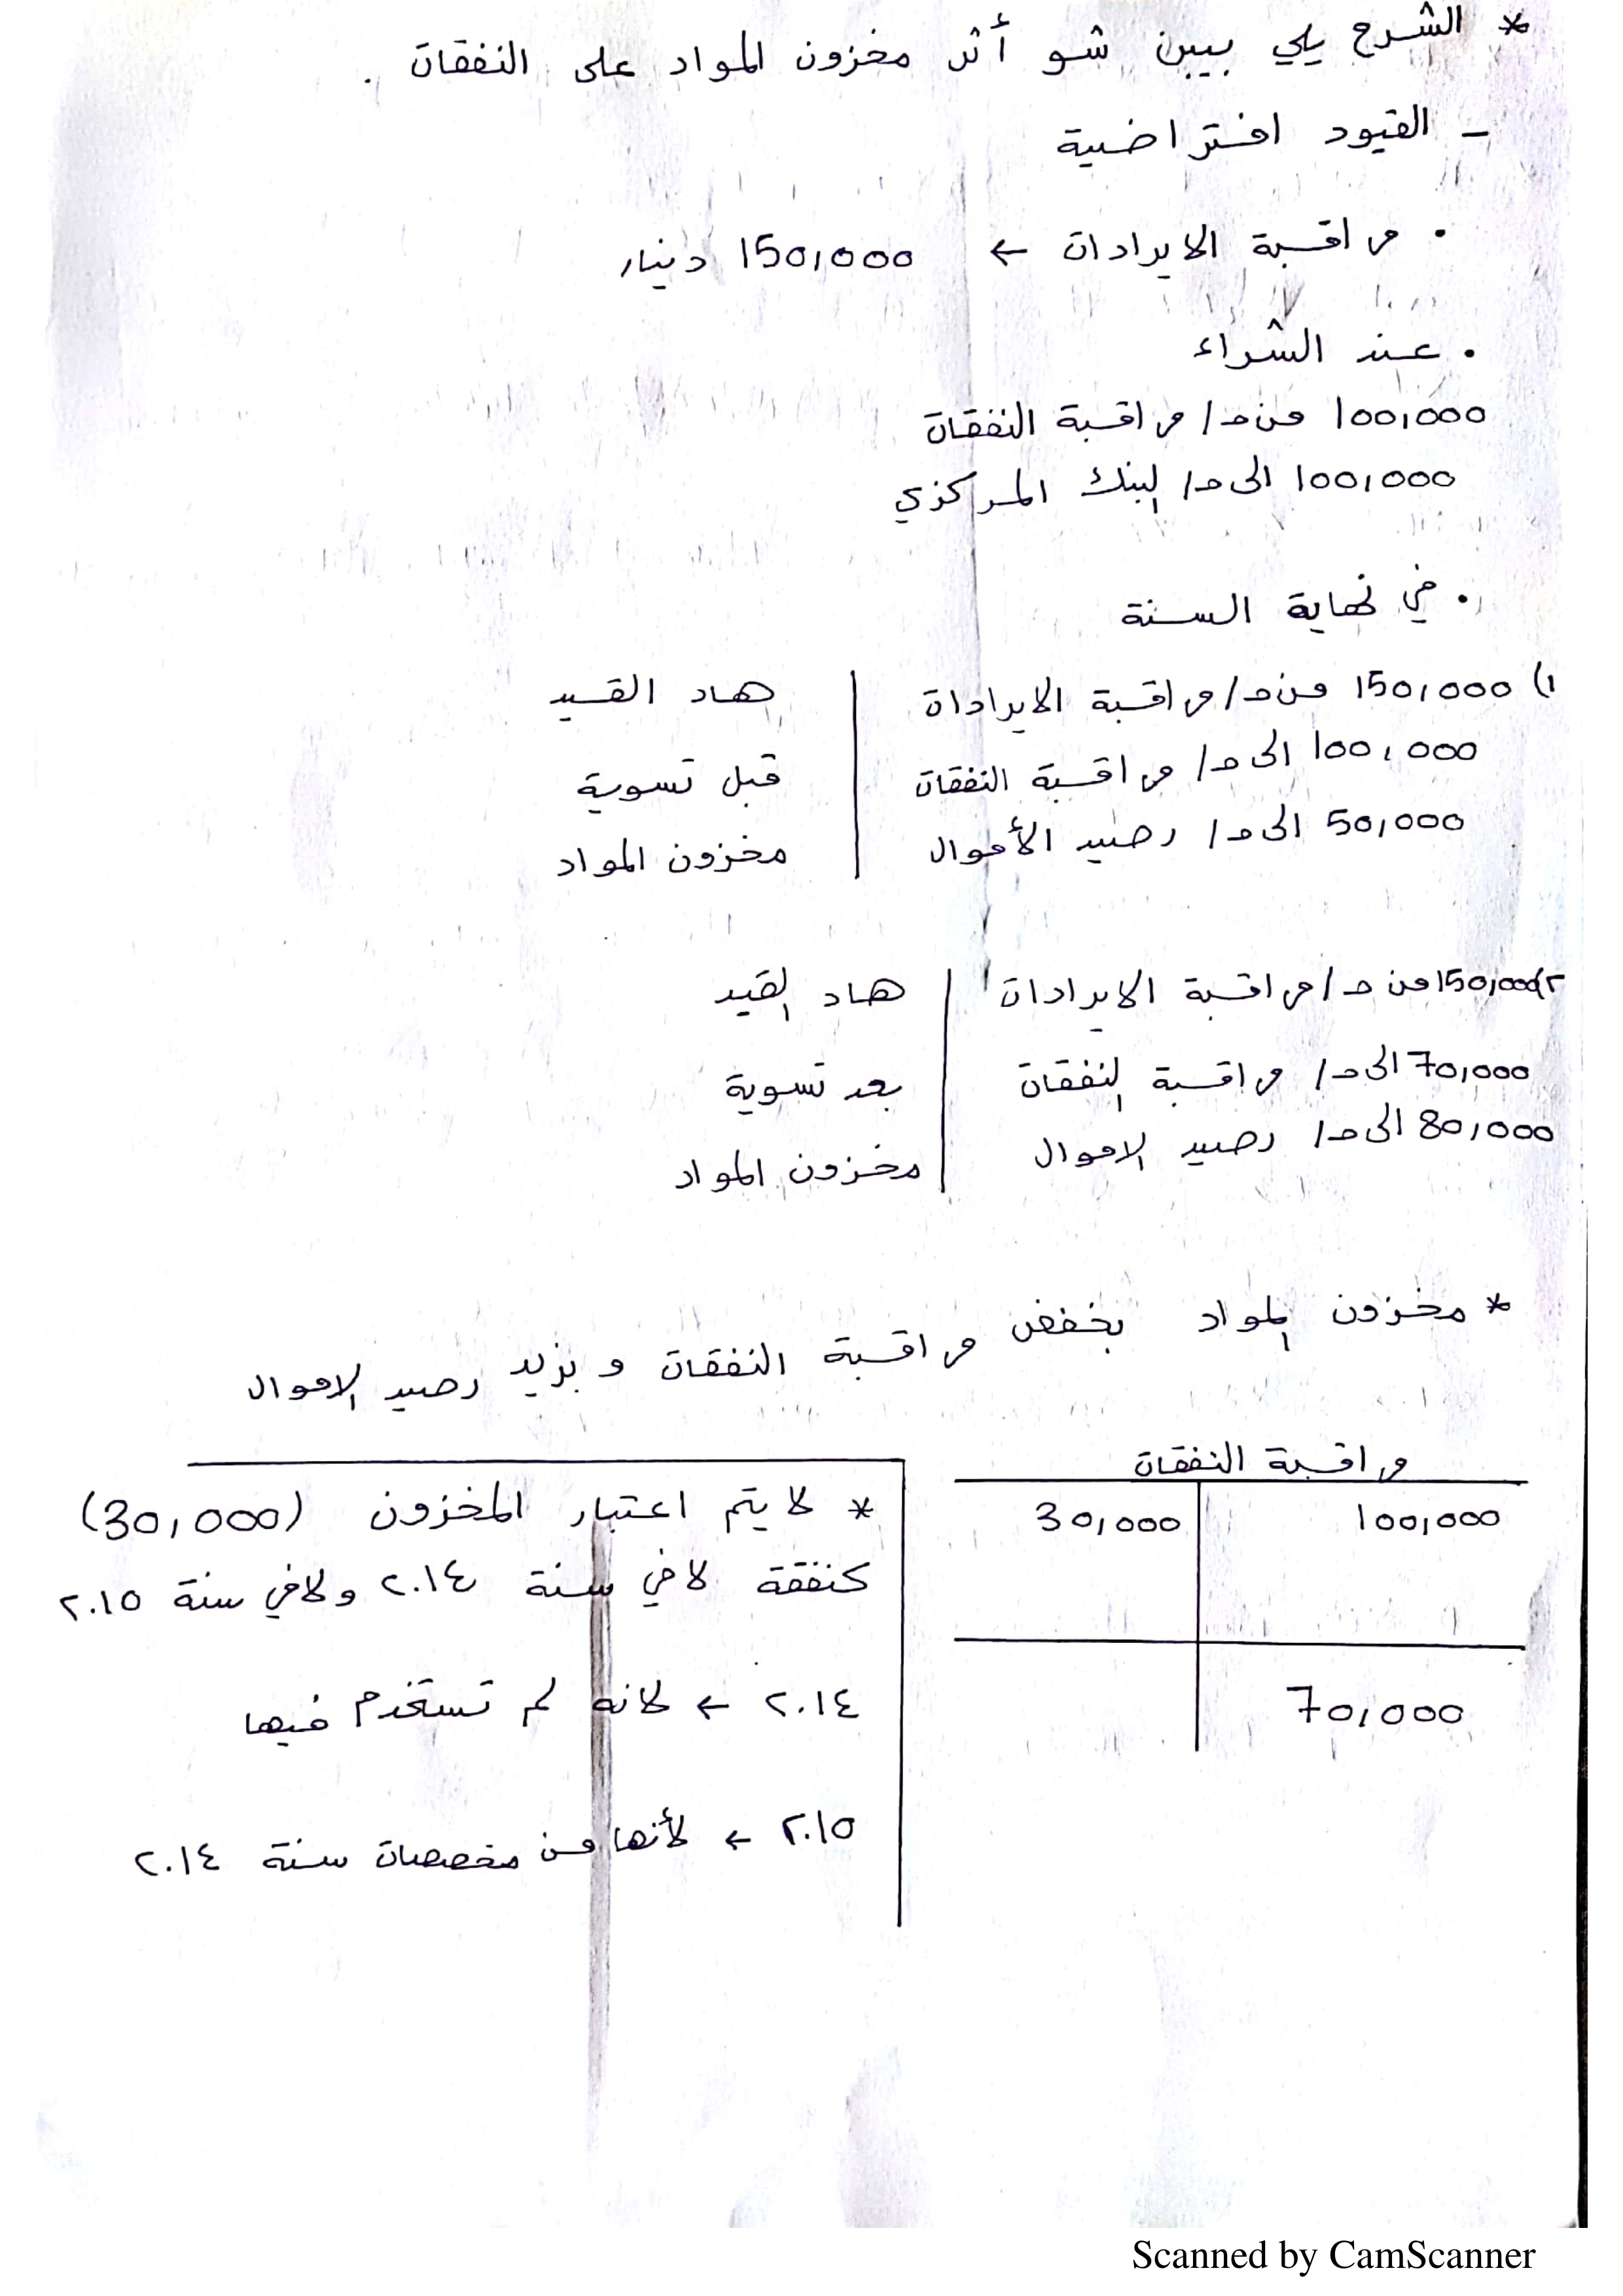 * الشرح يلي يبين شو أثر مخزون المواد على النفقات .
- القيود افتراضية
. مراقبة الايرادات ← 150,000 دينار
. عند الشراء
100,000 من ح/ مراقبة النفقات
100,000 الى ح/ البنك المركزي
. في نهاية السنة
١) 150,000 من ح/ مراقبة الايرادات
100,000 الى ح/ مراقبة النفقات
50,000 الى ح/ رصيد الأموال
هاد القيد
قبل تسوية
مخزون المواد
٢) 150,000 من ح/ مراقبة الايرادات
70,000 الى ح/ مراقبة النفقات
80,000 الى ح/ رصيد الاموال
هاد القيد
بعد تسوية
مخزون المواد
* مخزون المواد بخفض مراقبة النفقات و بزيد رصيد الاموال
مراقبة النفقات
100,000 30,000
70,000
* لا يتم اعتبار المخزون (30,000)
كنفقة لا في سنة ٢٠١٤ ولا في سنة ٢٠١٥
٢٠١٤ ← لانه لم تستخدم فيها
٢٠١٥ ← لأنها من مخصصات سنة ٢٠١٤
Scanned by CamScanner